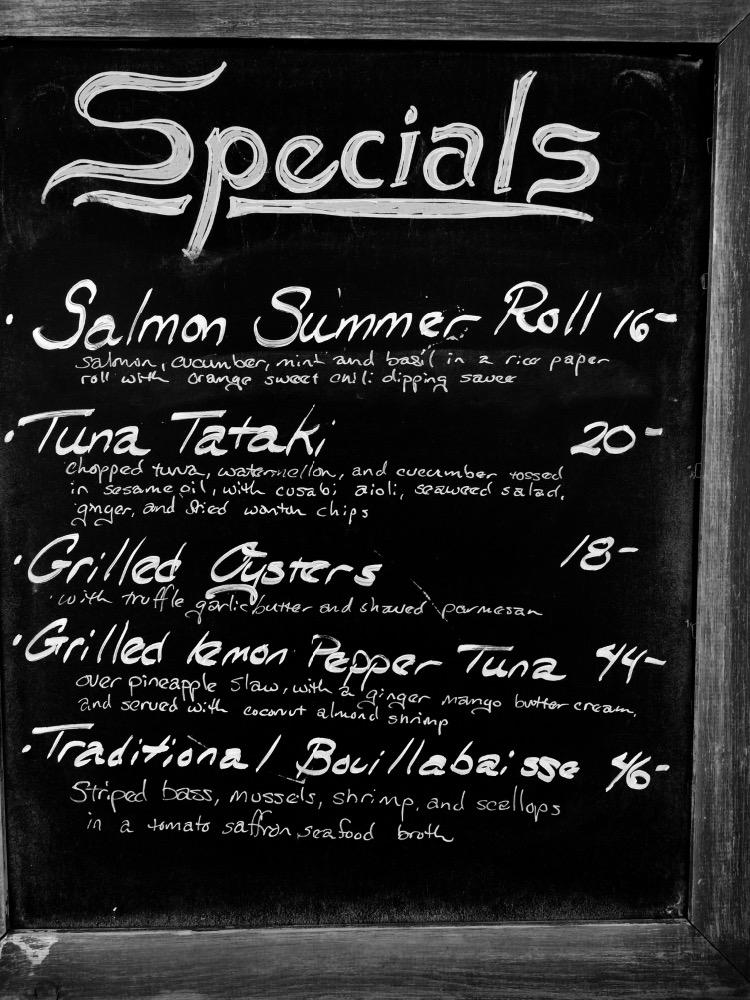 Specials
· Salmon Summer Roll 16-
Salmon, cucumber, mint and basil in a rice paper
roll with orange sweet chili dipping sauce
· Tuna Tataki 20-
chopped tuna, watermellon, and cucumber tossed
in sesame oil, with cusabi aioli, seaweed salad,
ginger, and fried wonton chips
· Grilled Oysters 18-
with truffle garlic butter and shaved parmesan
· Grilled lemon Pepper Tuna 44-
over pineapple slaw, with a ginger mango butter cream,
and served with coconut almond shrimp
· Traditional Bouillabaisse 46-
Striped bass, mussels, shrimp, and scallops
in a tomato saffron seafood broth